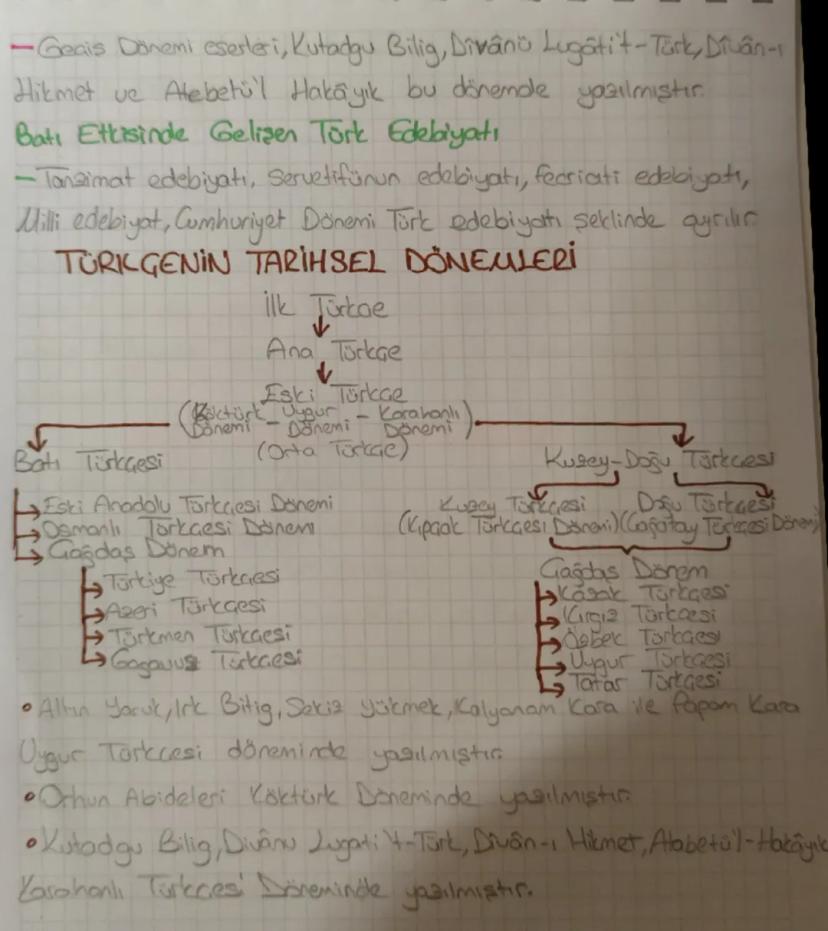 - Geçiş Dönemi eserleri, Kutadgu Bilig, Dîvânü Lugâti't-Türk, Dîvân-ı
Hikmet ve Atebetü'l Hakâyık bu dönemde yazılmıştır.
Batı Etkisinde Gelişen Türk Edebiyatı
- Tanzimat edebiyatı, Servetifünun edebiyatı, fecriati edebiyatı,
Milli edebiyat, Cumhuriyet Dönemi Türk edebiyatı şeklinde ayrılır.
TÜRKÇENİN TARİHSEL DÖNEMLERİ
İlk Türkçe
Ana Türkçe
Eski Türkçe
(Köktürk Dönemi - Uygur Dönemi - Karahanlı Dönemi)
(Orta Türkçe)
Batı Türkçesi
Eski Anadolu Türkçesi Dönemi
Osmanlı Türkçesi Dönemi
Çağdaş Dönem
Türkiye Türkçesi
Azeri Türkçesi
Türkmen Türkçesi
Gagavuz Türkçesi
Kuzey-Doğu Türkçesi
Kuzey Türkçesi
(Kıpçak Türkçesi Dönemi)
Doğu Türkçesi
(Çağatay Türkçesi Dönemi)
Çağdaş Dönem
Kazak Türkçesi
Kırgız Türkçesi
Özbek Türkçesi
Uygur Türkçesi
Tatar Türkçesi
• Altın Yaruk, Irk Bitig, Sekiz Yükmek, Kalyanam Kara ve Papam Kara
Uygur Türkçesi döneminde yazılmıştır.
• Orhun Abideleri Köktürk Döneminde yazılmıştır.
• Kutadgu Bilig, Divânu Lugati't-Türk, Dîvân-ı Hikmet, Atabetü'l-Hakâyık
Karahanlı Türkçesi Döneminde yazılmıştır.